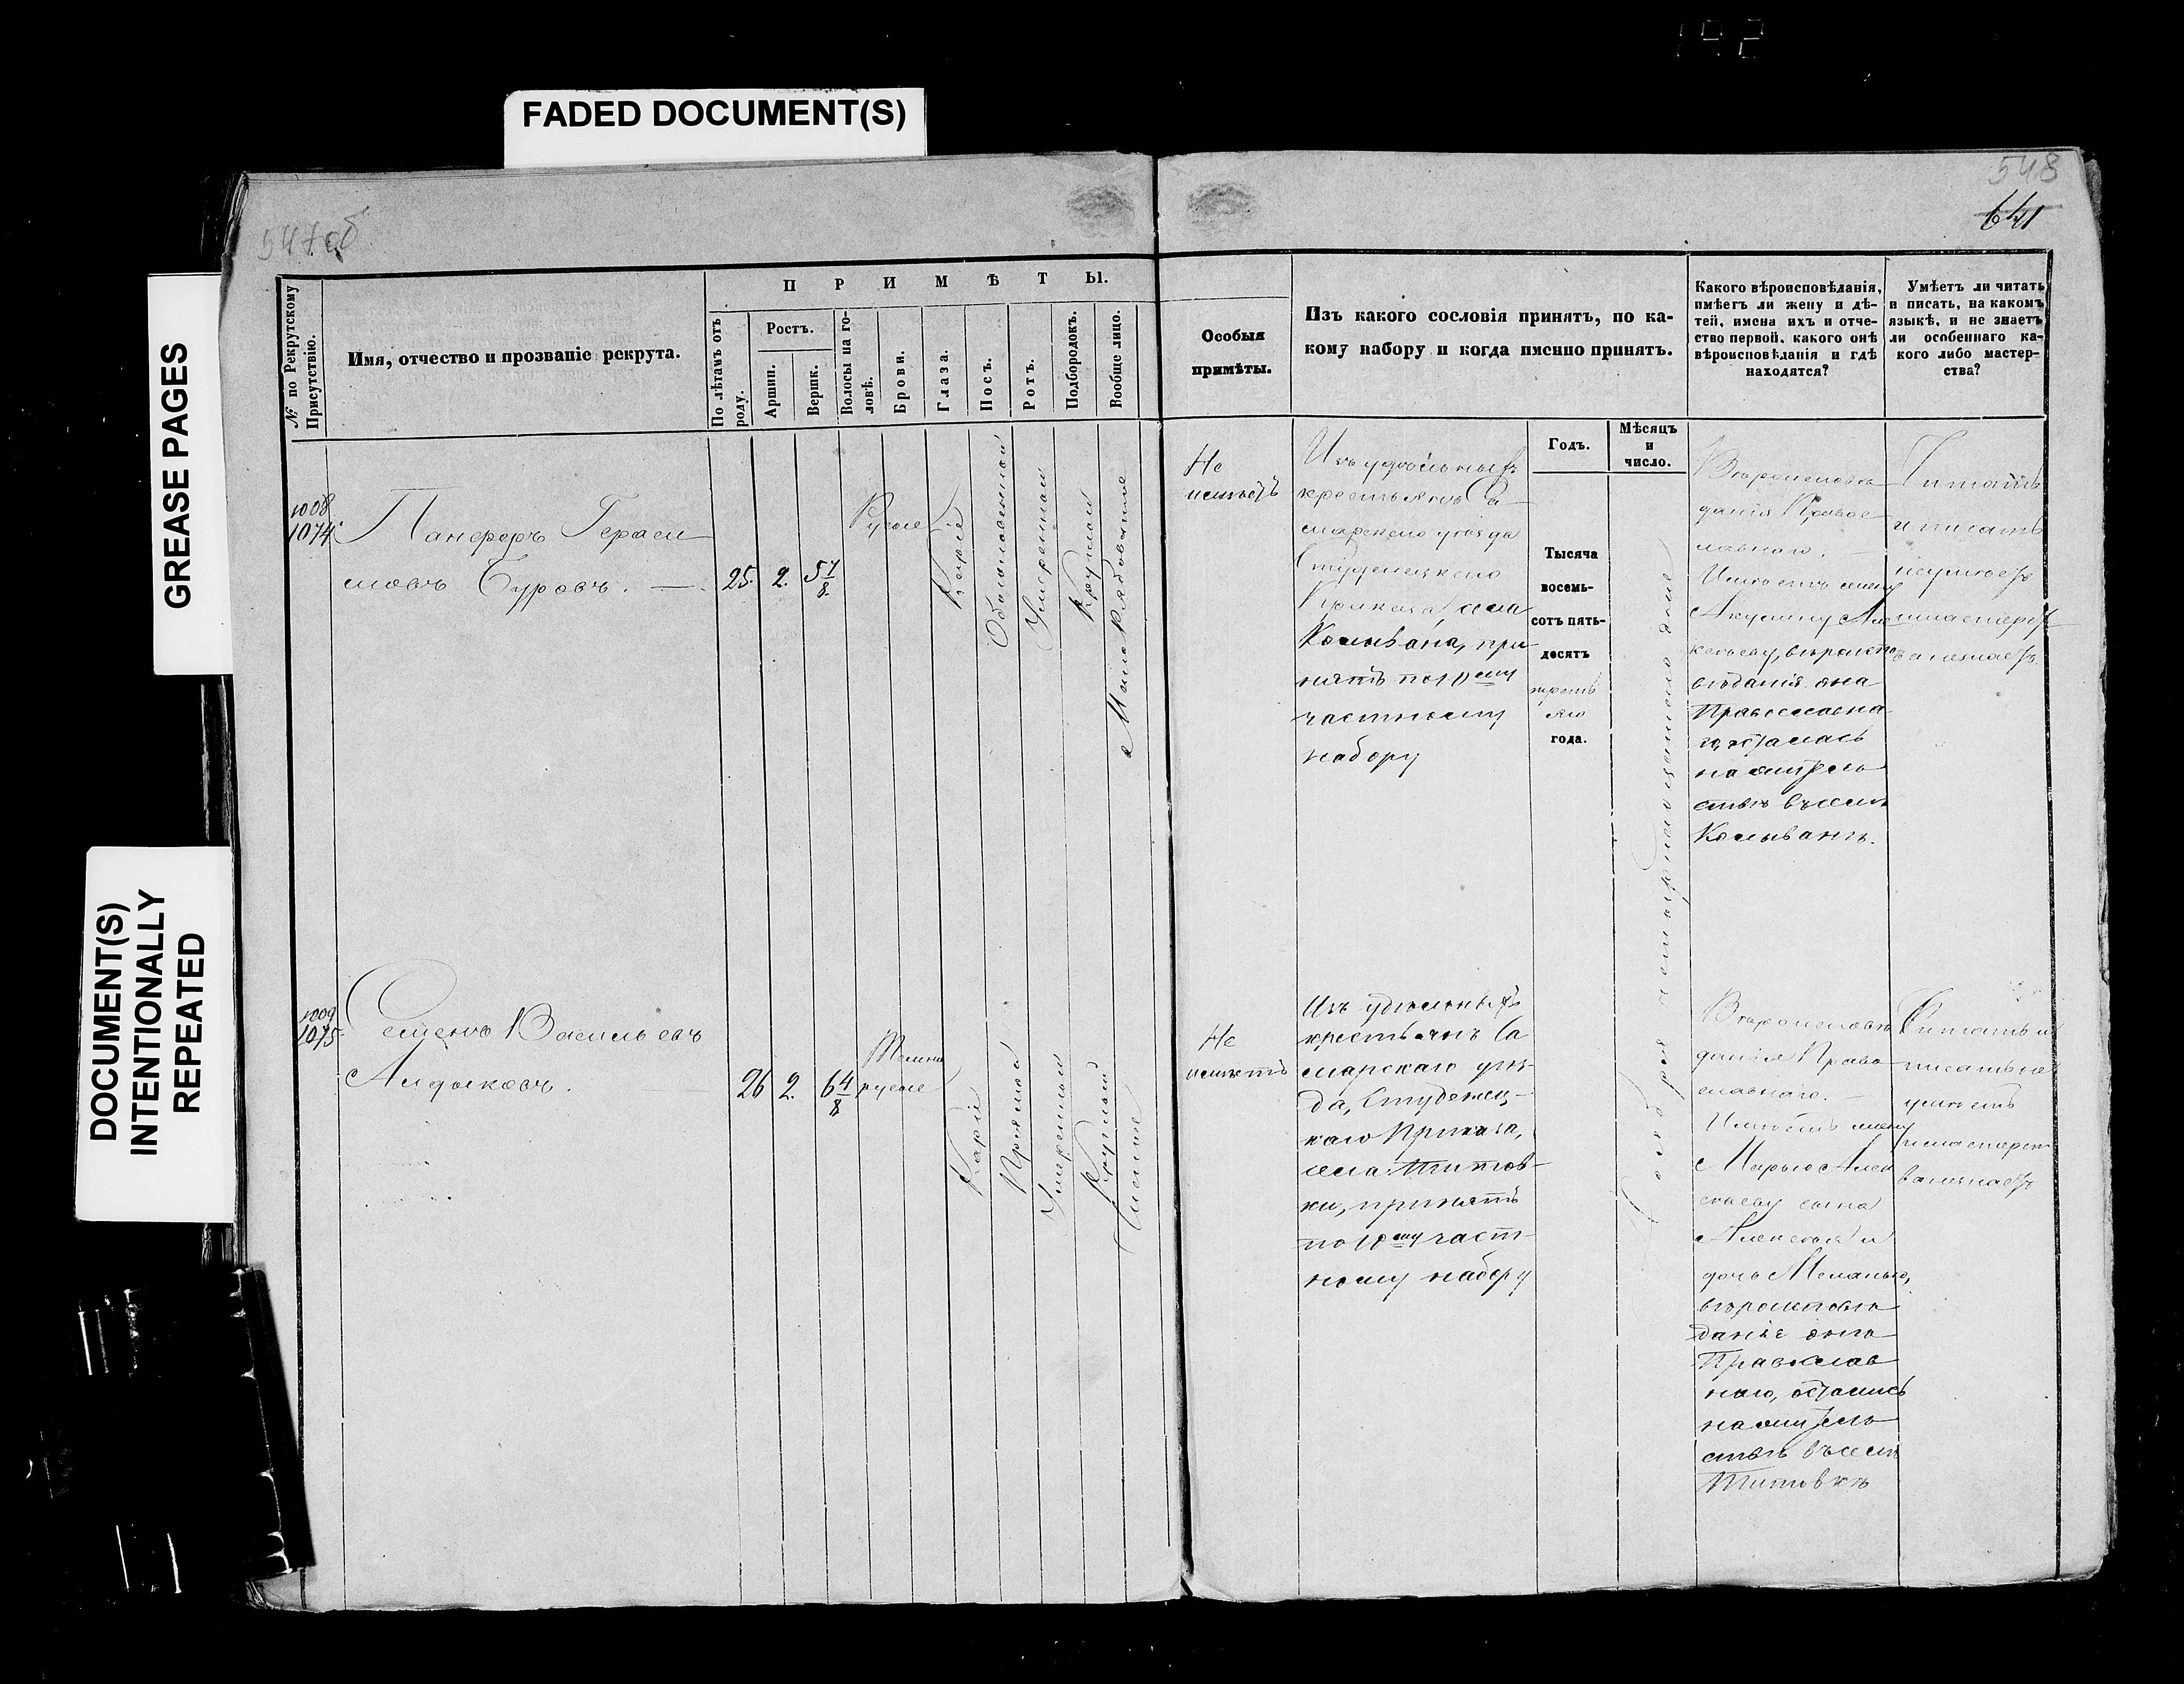 FADED DOCUMENT(S)
GREASE PAGES
DOCUMENT(S)
INTENTIONALLY
REPEATED
547об
548
641
№ по Рекрутскому
Присутствію.
Имя, отчество и прозваніе рекрута.
ПРИМѢТЫ.
По лѣтамъ отъ
роду.
Ростъ.
Аршин.
Вершк.
Волосы на го-
ловѣ.
Брови.
Глаза.
Носъ.
Ротъ.
Подбородокъ.
Вообще лицо.
Особыя
примѣты.
Изъ какого сословія принятъ, по ка-
кому набору и когда именно принятъ.
Какого вѣроисповѣданія,
имѣетъ ли жену и дѣ-
тей, имена ихъ и отче-
ство первой, какого онѣ
вѣроисповѣданія и гдѣ
находятся?
Умѣетъ ли читать
и писать, на какомъ
языкѣ, и не знаетъ
ли особеннаго ка-
кого либо мастер-
ства?
Годъ.
Мѣсяцъ
и
число.
1008
1074
Панферъ Гераси
мовъ Буровъ.
25. 2. 5 1/8
Русые
Каріе
Обыкновенной
Умеренной
Круглой
Малорябоватое
Не
имѣетъ
Изъ удѣльныхъ
крестьянъ Са-
марскаго уѣзда
Студенецкаго
Приказа, села
Колывана, при-
нятъ по 10ему
частному
набору
Тысяча
восемь-
сотъ пять-
десятъ
третъ
яго
года.
Вѣроисповѣ
данія Правос
лавнаго.
Имѣетъ жену
Акулину Але
ксѣеву, вѣроиспо
вѣданія она
Православна
го, осталась
на жител
ствѣ въ селѣ
Колыванѣ.
Читать
и писать
неумѣетъ
и мастерст
ва незнаетъ.
1009
1075
Семенъ Васильевъ
Алдыковъ.
26 2. 6 4/8
Темно
русые
Каріе
Прямой
Умеренной
Круглой
Чистое
Не
имѣетъ
Изъ удѣльныхъ
крестьянъ Са
марскаго уѣз-
да, Студенец-
каго Приказа,
села Титов-
ки, принятъ
по 10ему част-
ному набору
Вѣроисповѣ
данія Право
славнаго.
Имѣетъ жену
Марью Алек
сѣеву сына
Алексѣя и
дочь Меланью,
вѣроисповѣ
даніе они
Православ
наго, остались
на жител
ствѣ въ селѣ
Титовкѣ
Читать и
писать не
умѣетъ
и мастерст
ва незнаетъ